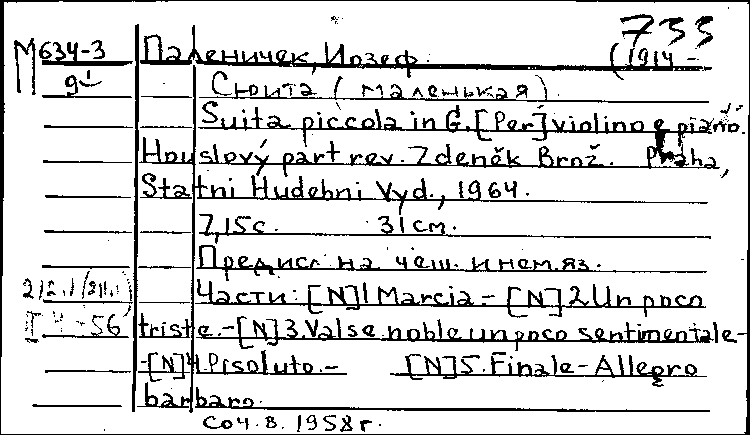 733
М634-3 Паленичек, Иозеф. (1914 -
9
Сюита (маленькая)
Suita piccola in G. [Per] violino e piano.
Houslový part rev. Zdeněk Brož. Praha,
Statni Hudebni Vyd., 1964.
7,15с. 31см.
Предисл на чеш. и нем.яз.
Части: [N]1 Marcia.- [N]2.Un poco
triste.-[N]3.Valse noble un poco sentimentale-
-[N]4.Risoluto.- [N]5.Finale-Allegro
barbaro.
Соч. в. 1958г.